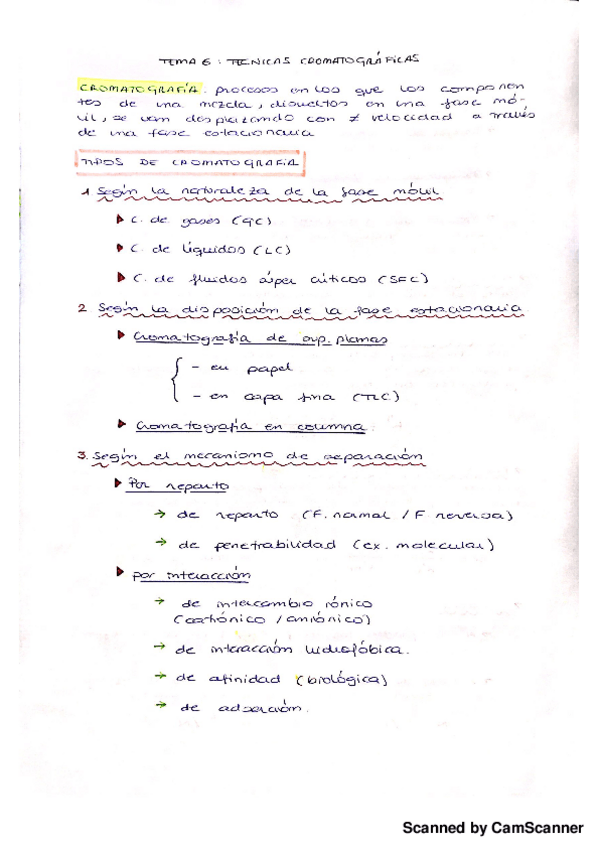 TEMA 6: TECNICAS CROMATOGRÁFICAS
CROMATOGRAFÍA: procesos en los que los componen
tes de una mezcla, disueltos en una fase mó-
vil, se van desplazando con ≠ velocidad a través
de una fase estacionaria
TIPOS DE CROMATOGRAFÍA
1 Según la naturaleza de la fase móvil
▶ C. de gases (GC)
▶ C. de líquidos (LC)
▶ C. de fluidos súper críticos (SFC)
2 Según la disposición de la fase estacionaria
▶ Cromatografía de sup. planas
- en papel
- en capa fina (TLC)
▶ Cromatografía en columna
3. Según el mecanismo de separación
▶ Por reparto
→ de reparto (F. normal / F reversa)
→ de penetrabilidad (ex. molecular)
▶ por interacción
→ de intercambio iónico
(catiónico / aniónico)
→ de interacción hidrofóbica.
→ de afinidad (biológica)
→ de adsorción.
Scanned by CamScanner